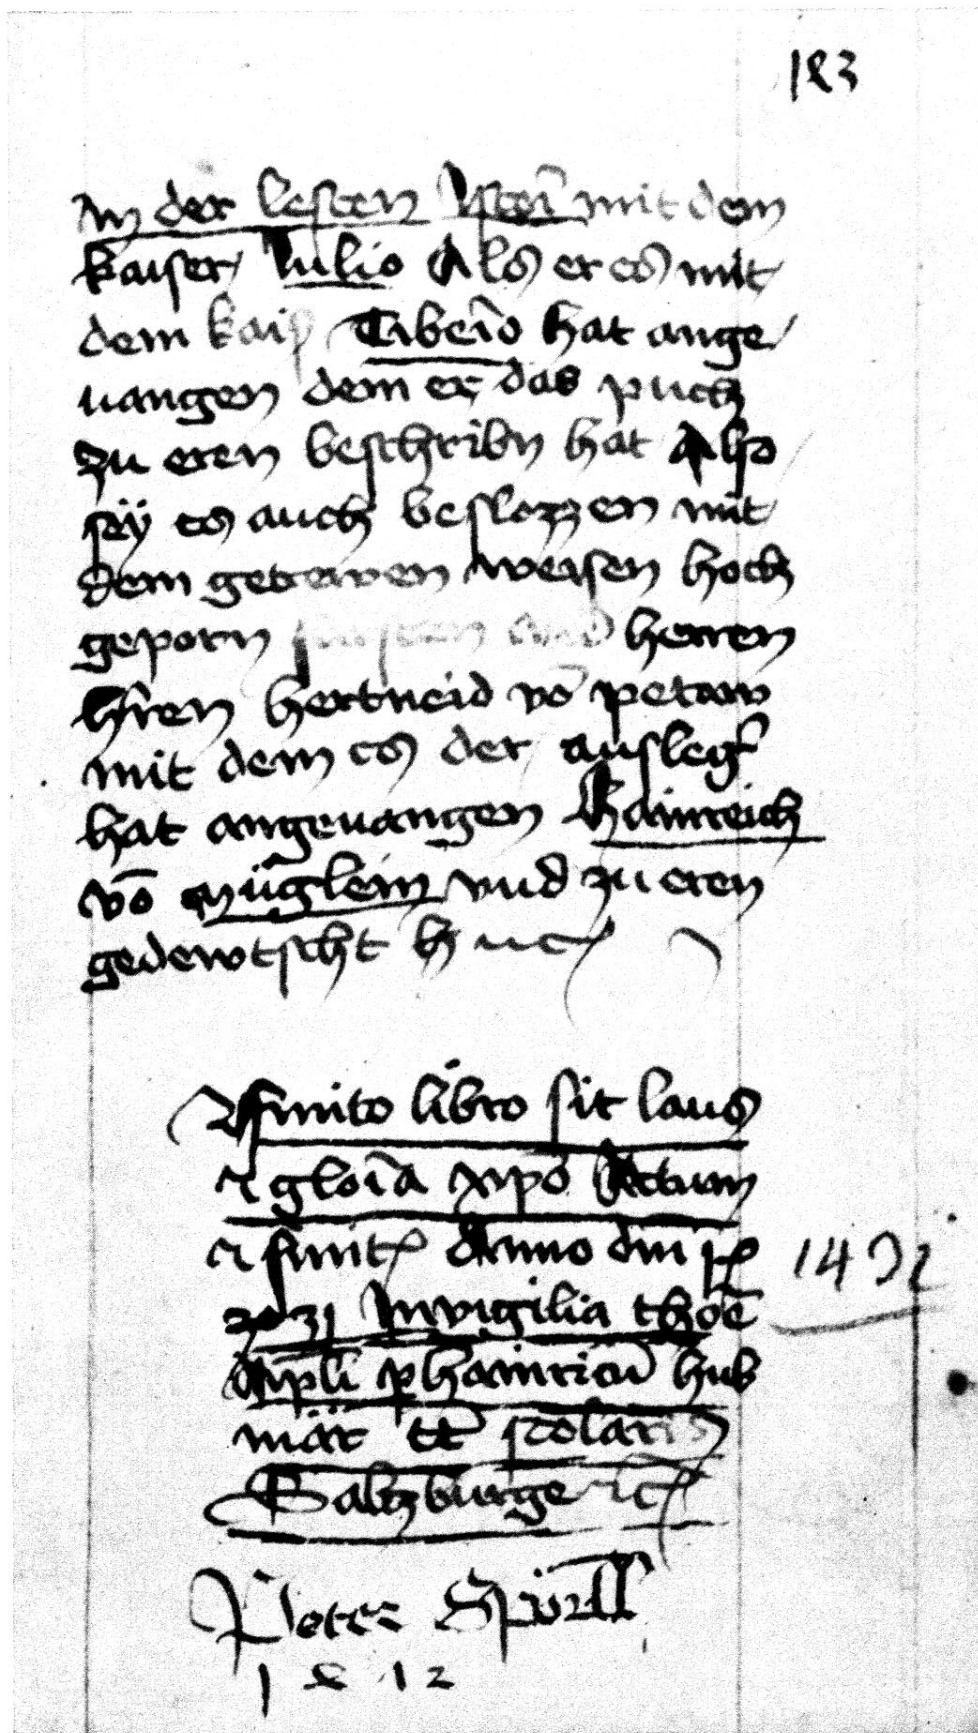 183
In der lesten ystori mit dem
kaiser Iulio Als er es mit
dem kais Tiberio hat ange
uangen dem er das puch
zu eren beschribn hat Also
sey es auch beslozzen mit
dem getrewen weisen hoch
geporn fursten und herren
hren hertneid vō petaw
mit dem es der ausleg
hat angeuangen Hainreich
vō müglein vnd zu eren
gedewtscht h uc
finito libro sit laus
⁊ gloīa xpo Actum
⁊ finit Anno dni
31 In vigilia thoē
Apli p hainricū hub
mär tc scolaris
Saltzburge ⁊c
Peter Spörll